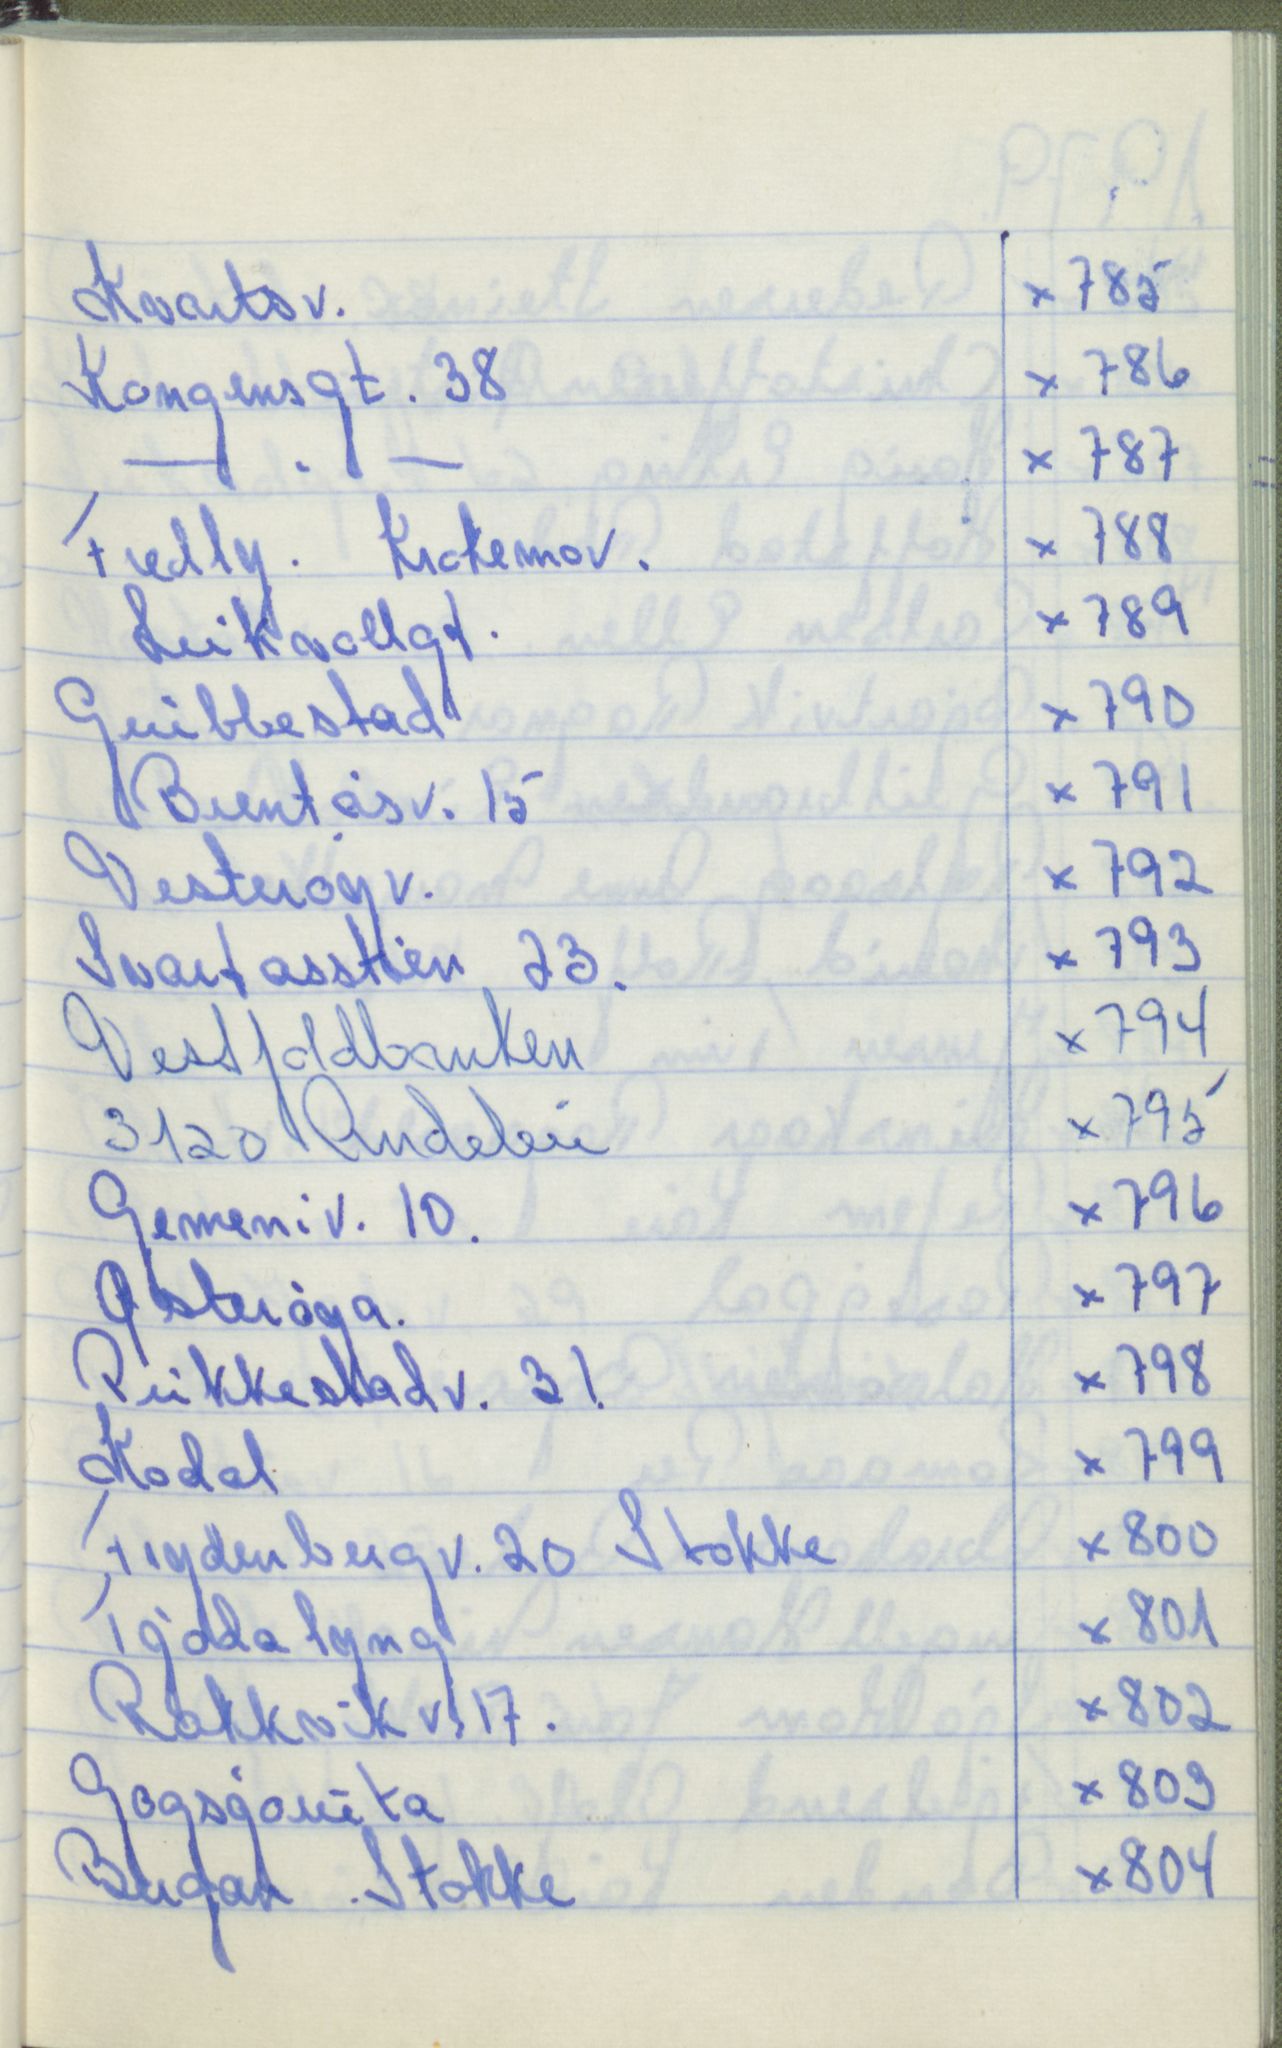 Kvartsv. x 785
Kongensgt. 38 x 786
— . — x 787
Fredly. Krokemov. x 788
Leikvollgt. x 789
Greibbestad x 790
Brentåsv. 15 x 791
Vesterøyv. x 792
Svartåsstien 23. x 793
Vestfoldbanken x 794
3120 Andebu x 795
Gemeniv. 10. x 796
Østerøya. x 797
Reikkestadv. 31. x 798
Kodal x 799
Frydenbergv. 20 Stokke x 800
Fjødalyng x 801
Rakkvikv. 17. x 802
Gogsjørita x 803
Bergan Stokke x 804